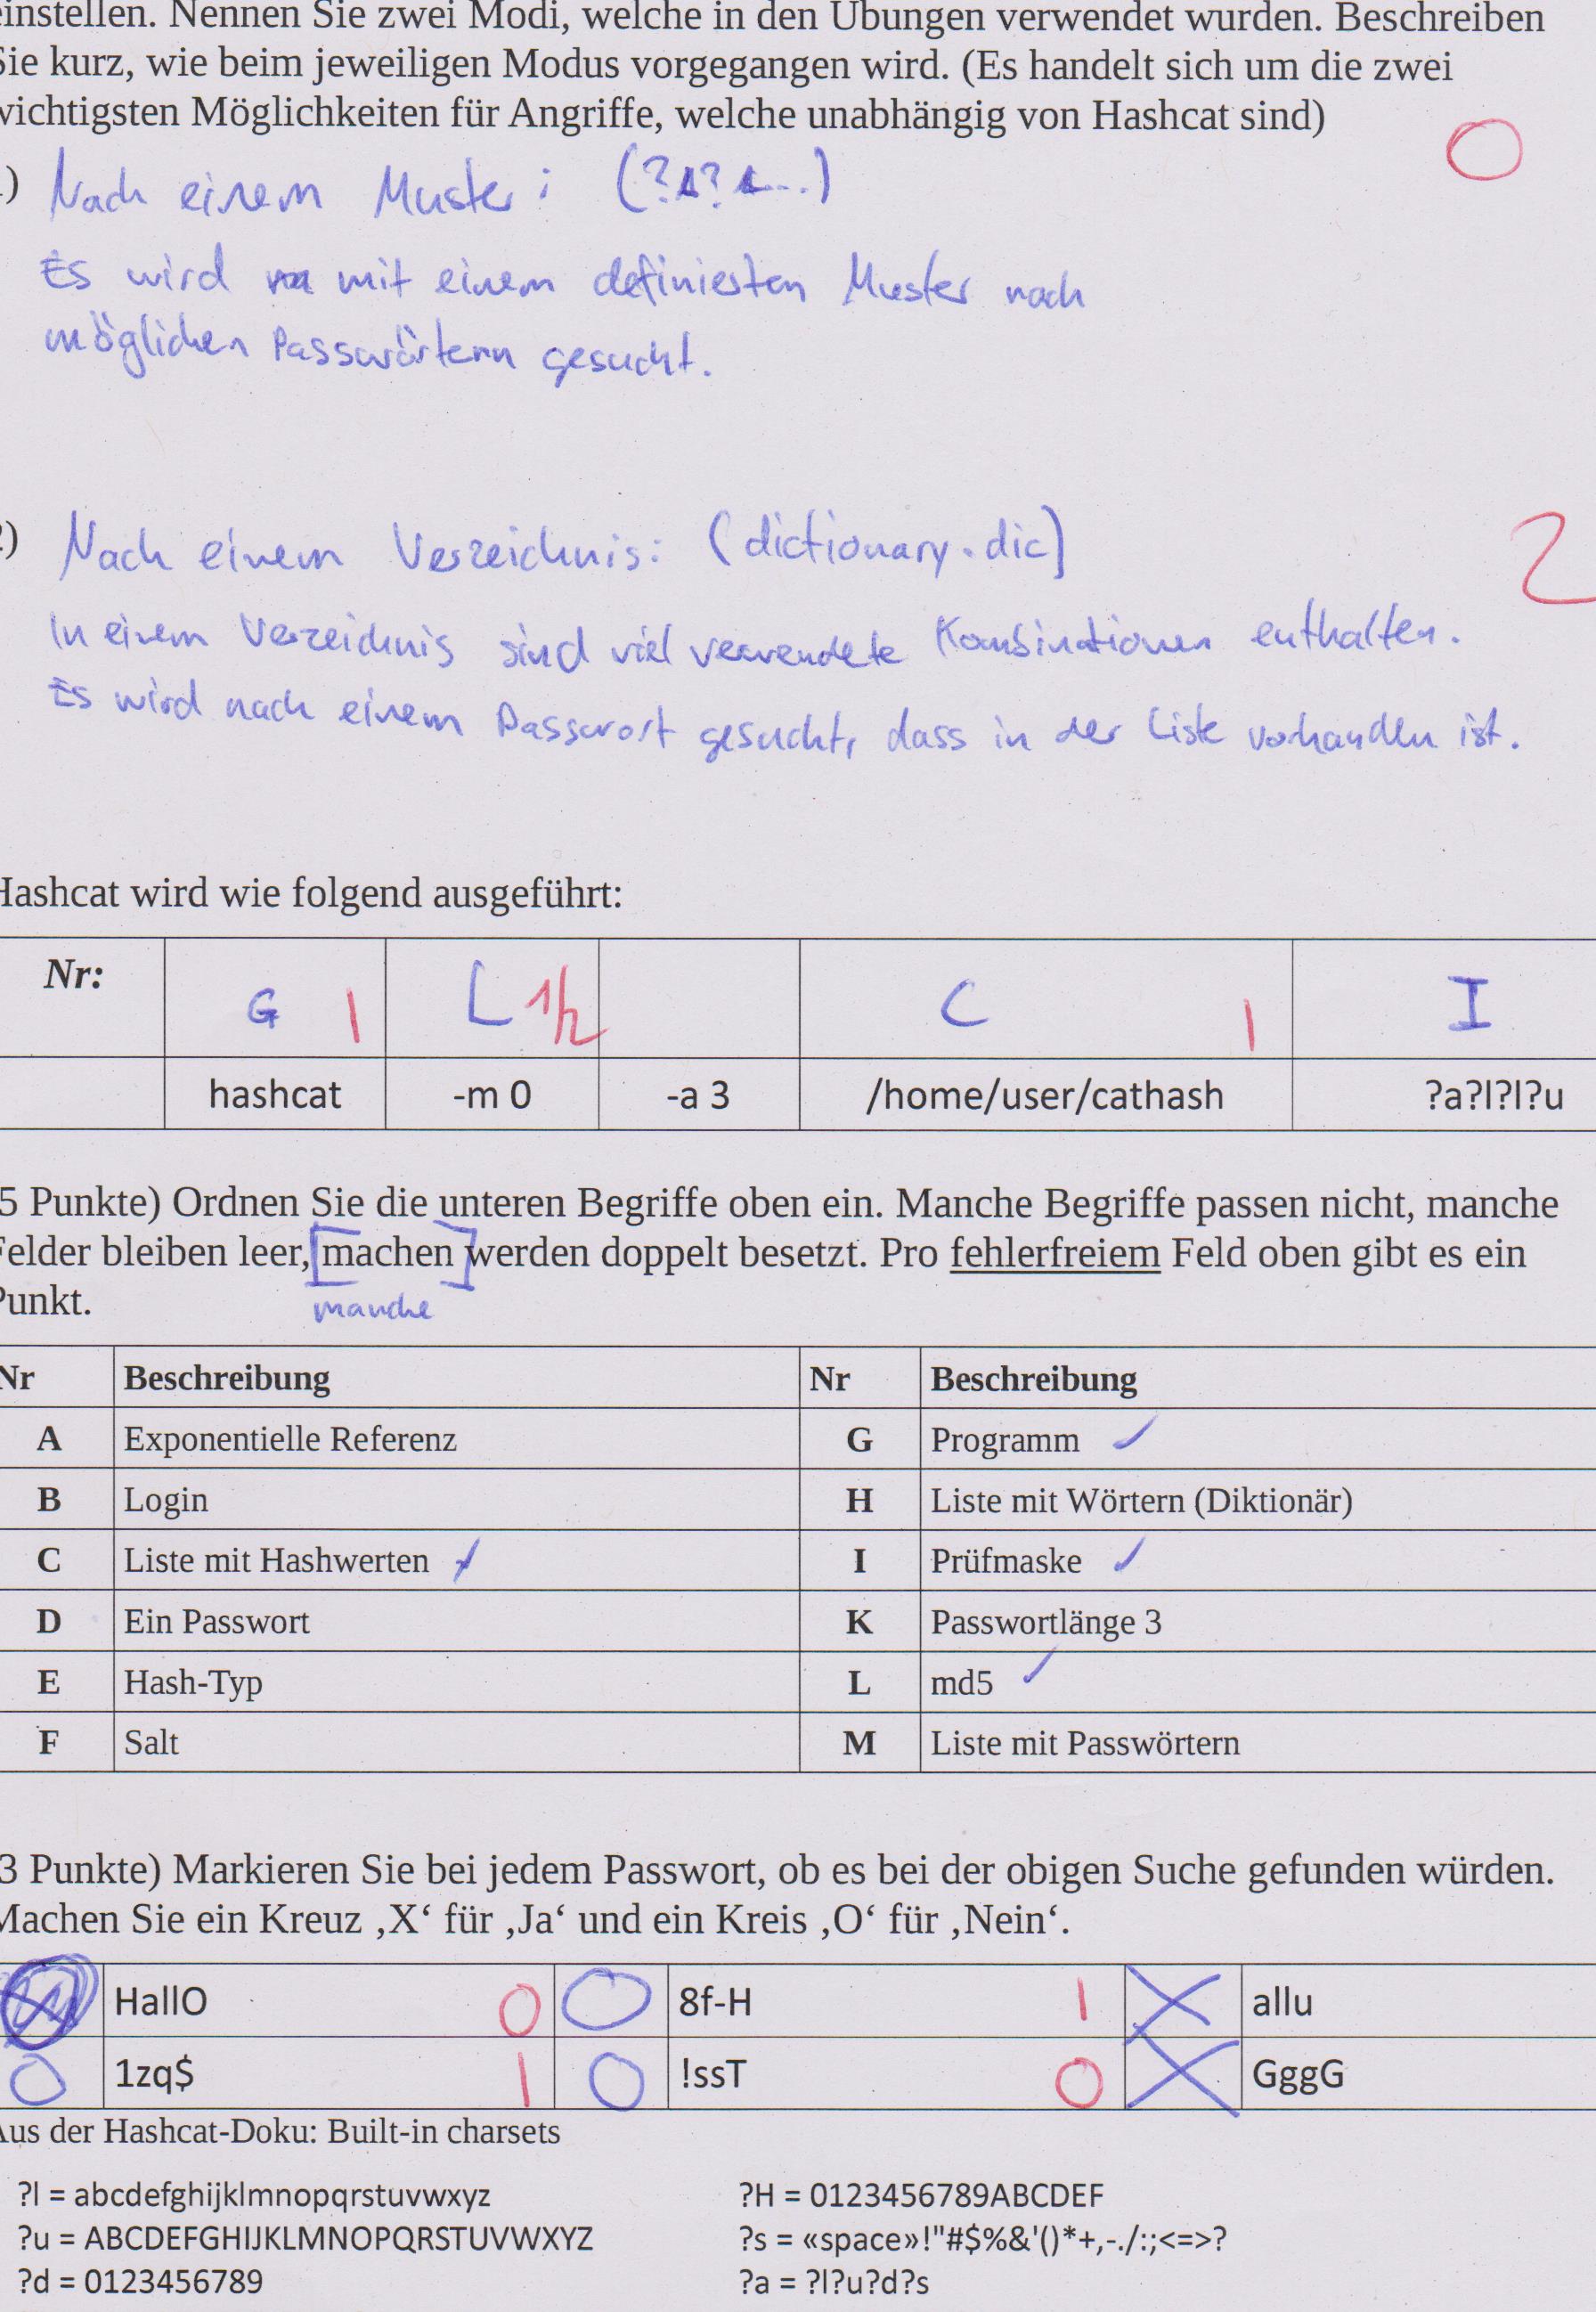 einstellen. Nennen Sie zwei Modi, welche in den Übungen verwendet wurden. Beschreiben
Sie kurz, wie beim jeweiligen Modus vorgegangen wird. (Es handelt sich um die zwei
wichtigsten Möglichkeiten für Angriffe, welche unabhängig von Hashcat sind)
0
) Nach einem Muster: (?
Es wird mit einem definierten Muster nach
möglichen Passwörtern gesucht.
2) Nach einem Verzeichnis: (dictionary.dic)
2
In einem Verzeichnis sind viel verwendete Kombinationen enthalten.
Es wird nach einem Passwort gesucht, dass in der Liste vorhanden ist.
Hashcat wird wie folgend ausgeführt:
Nr: G 1 L 1/2 C 1 I
hashcat -m 0 -a 3 /home/user/cathash ?a?l?l?u
5 Punkte) Ordnen Sie die unteren Begriffe oben ein. Manche Begriffe passen nicht, manche
Felder bleiben leer, [machen] werden doppelt besetzt. Pro fehlerfreiem Feld oben gibt es ein
Punkt. manche
Nr Beschreibung Nr Beschreibung
A Exponentielle Referenz G Programm ✓
B Login H Liste mit Wörtern (Diktionär)
C Liste mit Hashwerten I Prüfmaske ✓
D Ein Passwort K Passwortlänge 3
E Hash-Typ L md5 ✓
F Salt M Liste mit Passwörtern
3 Punkte) Markieren Sie bei jedem Passwort, ob es bei der obigen Suche gefunden würden.
Machen Sie ein Kreuz ‚X‘ für ‚Ja‘ und ein Kreis ‚O‘ für ‚Nein‘.
HallO 0 O 8f-H 1 X allu
O 1zq$ 1 O !ssT 0 X GggG
Aus der Hashcat-Doku: Built-in charsets
?l = abcdefghijklmnopqrstuvwxyz ?H = 0123456789ABCDEF
?u = ABCDEFGHIJKLMNOPQRSTUVWXYZ ?s = «space»!"#$%&'()*+,-./:;<=>?
?d = 0123456789 ?a = ?l?u?d?s